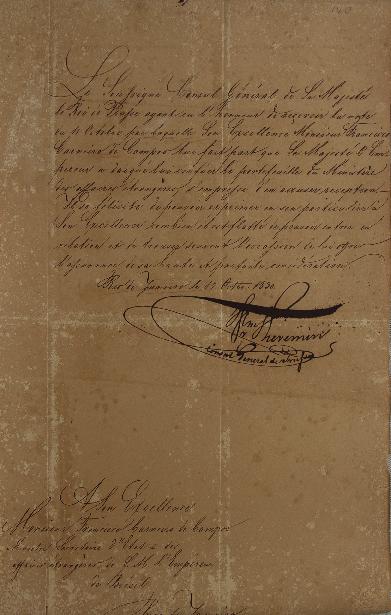 Le Soussigné Consul Général de Sa Majesté
le Roi de Prusse ayant eu l'honneur de recevoir la note
du 11 Octobre par laquelle Son Excellence Monsieur Francisco
Carneiro de Campos lui fait part que Sa Majesté l'Em
pereur a daigné lui confier le portefeuille du Ministère
des affaires étrangères s'empresse d'en accuser reception.
Il se félicite de pouvoir exprimer en son particulier à
Son Excellence combien il est flatté de pouvoir entrer en
relation et de
l'assurance de sa haute et parfaite considération.
Rio de Janeiro le 13 Octbr. 1830.
Theremin
Consul General de Prusse
A Son Excellence
Monsieur Francisco Carneiro de Campos
Ministre Secretaire d'Etat des
affaires étrangères de S. M. l'Empereur
du Brésil